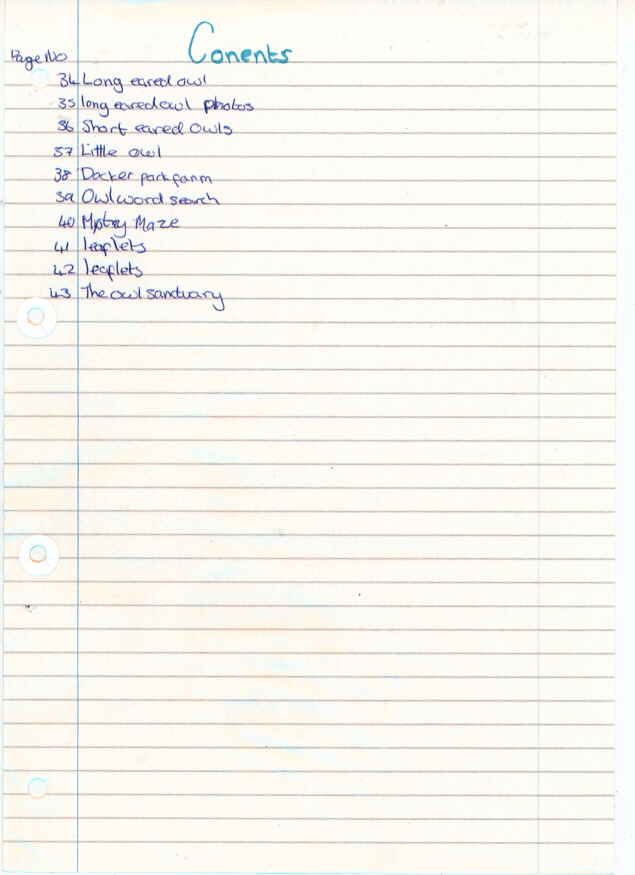 Conents
Page No
34 Long eared owl
35 long eared owl photos
36 Short eared owls
37 Little owl
38 Docker park farm
39 Owl word search
40 Mystrey Maze
41 leaflets
42 leaflets
43 The owl sanctuary